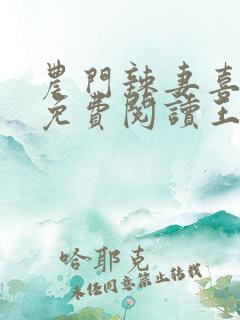 農門辣妻喜
免費閱讀王
哈耶克
未经同意禁止转载